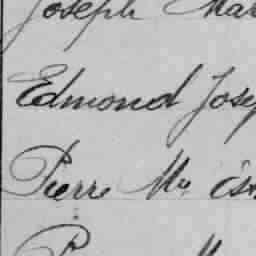 Joseph Mar
Edmond Josep
Pierre Me